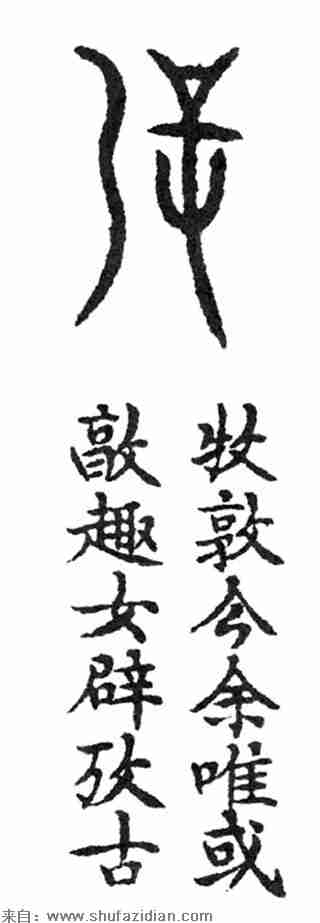 牧敦今余唯或
趣女辟攷古
来自：www.shufazidian.com